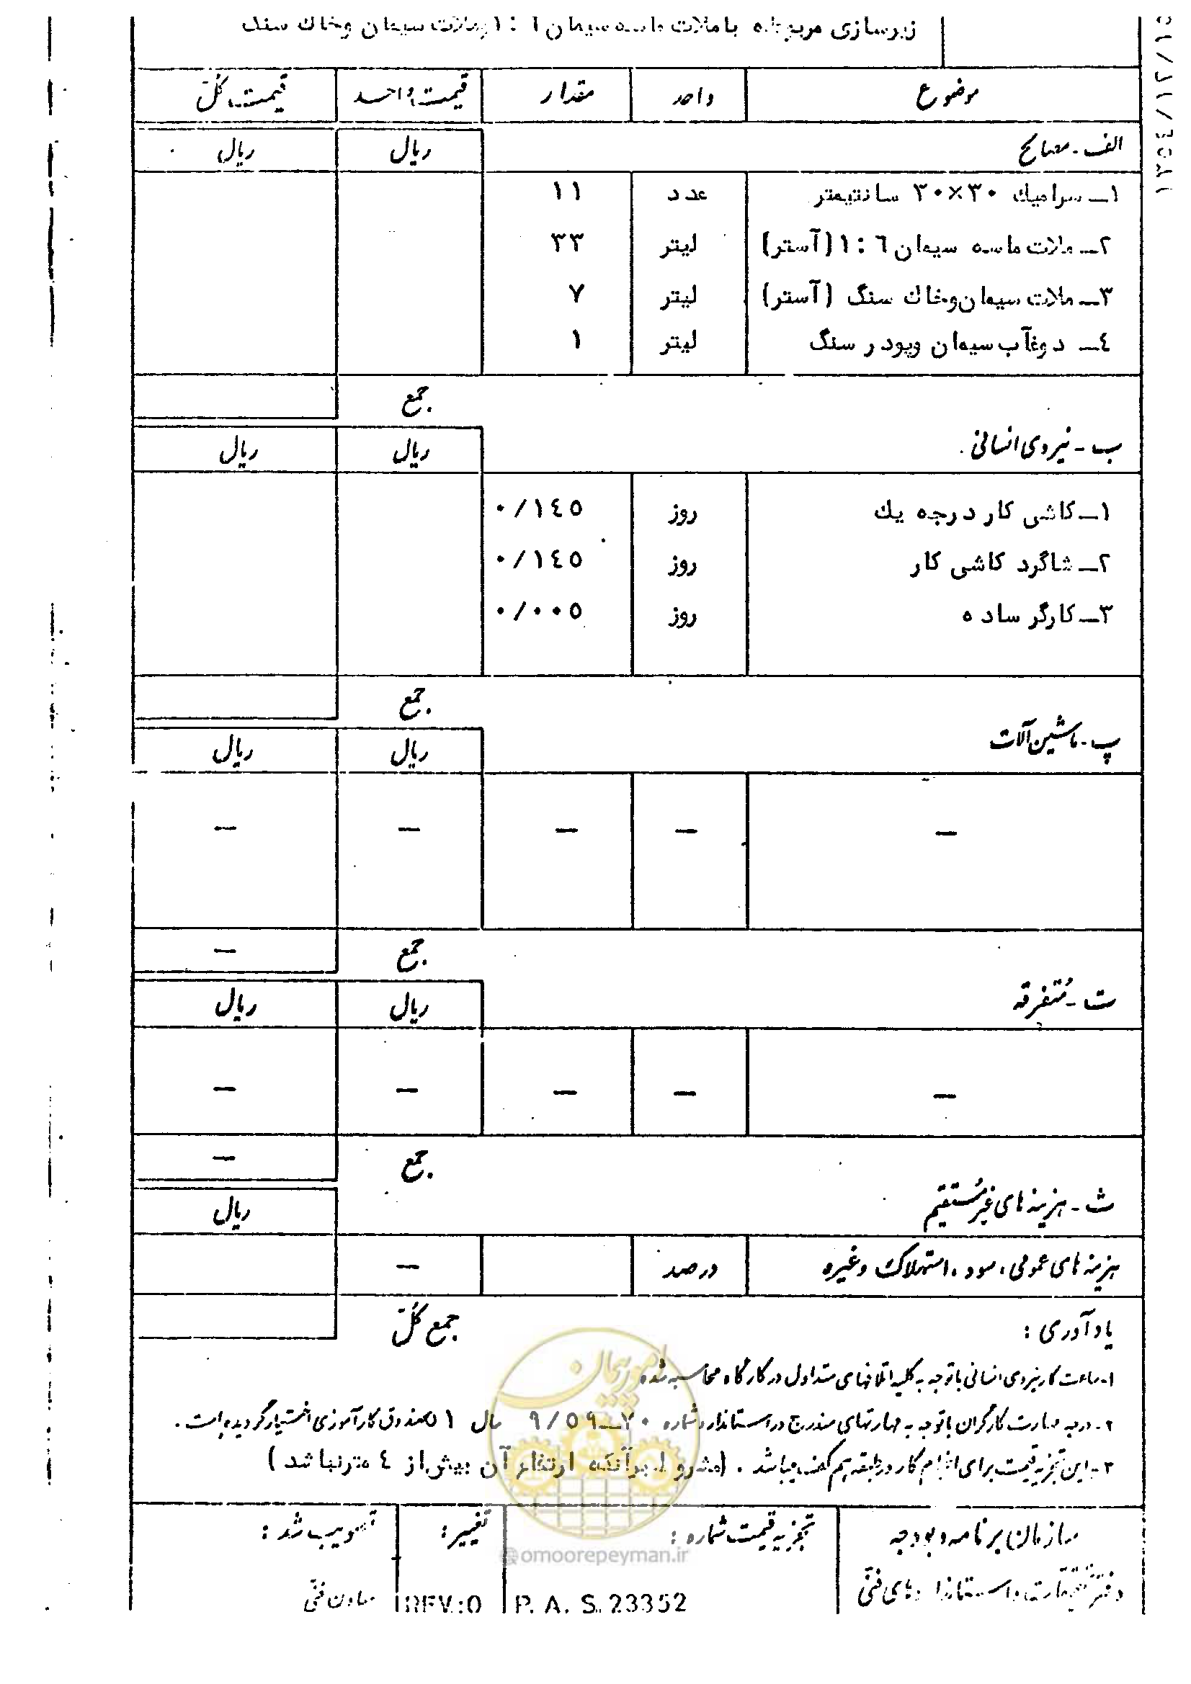 زیرسازی مربوطه با ملات ماسه سیمان ٦ : ١ وملات سیمان وخاك سنگ
موضوع واحد مقدار قیمت واحد قیمت کل
الف - مصالح ریال ریال
١ــ سرامیك ٣٠×٣٠ سانتیمتر عدد ١١
٢ــ ملات ماسه سیمان ٦ : ١ (آستر) لیتر ٣٣
٣ــ ملات سیمان وخاك سنگ (آستر) لیتر ٧
٤ــ دوغآب سیمان وپودر سنگ لیتر ١
جمع
ب - نیروی انسانی ریال ریال
١ــ کاشی کار درجه یك روز ٠/١٤٥
٢ــ شاگرد کاشی کار روز ٠/١٤٥
٣ــ کارگر ساده روز ٠/٠٠٥
جمع
پ - ماشین آلات ریال ریال
— — — — —
جمع —
ت - متفرقه ریال ریال
— — — — —
جمع —
ث - هزینه های غیرمستقیم ریال
هزینه های عمومی، سود، استهلاک وغیره درصد —
جمع کل
یادآوری :
١- ساعت کار نیروی انسانی با توجه به کلیه اتلافهای متداول در کارگاه محاسبه شده
٢- درجه مهارت کارگران باتوجه به مهارتهای مندرج در استاندارد شماره ٧٠ــ٩/٥٩ سال ٥١ صندوق کارآموزی اختیار گردیده است .
٣- این تجزیه قیمت برای انجام کار در طبقه هم کف میباشد . (مشروط برآنکه ارتفاع آن بیش از ٤ متر نباشد )
سازمان برنامه و بودجه تجزیه قیمت شماره : تغییر : تصویب شد :
دفتر تحقیقات و استانداردهای فنی P. A. S. 23352 REV:0 معاون فنی
امور پیمان
@omoorepeyman.ir